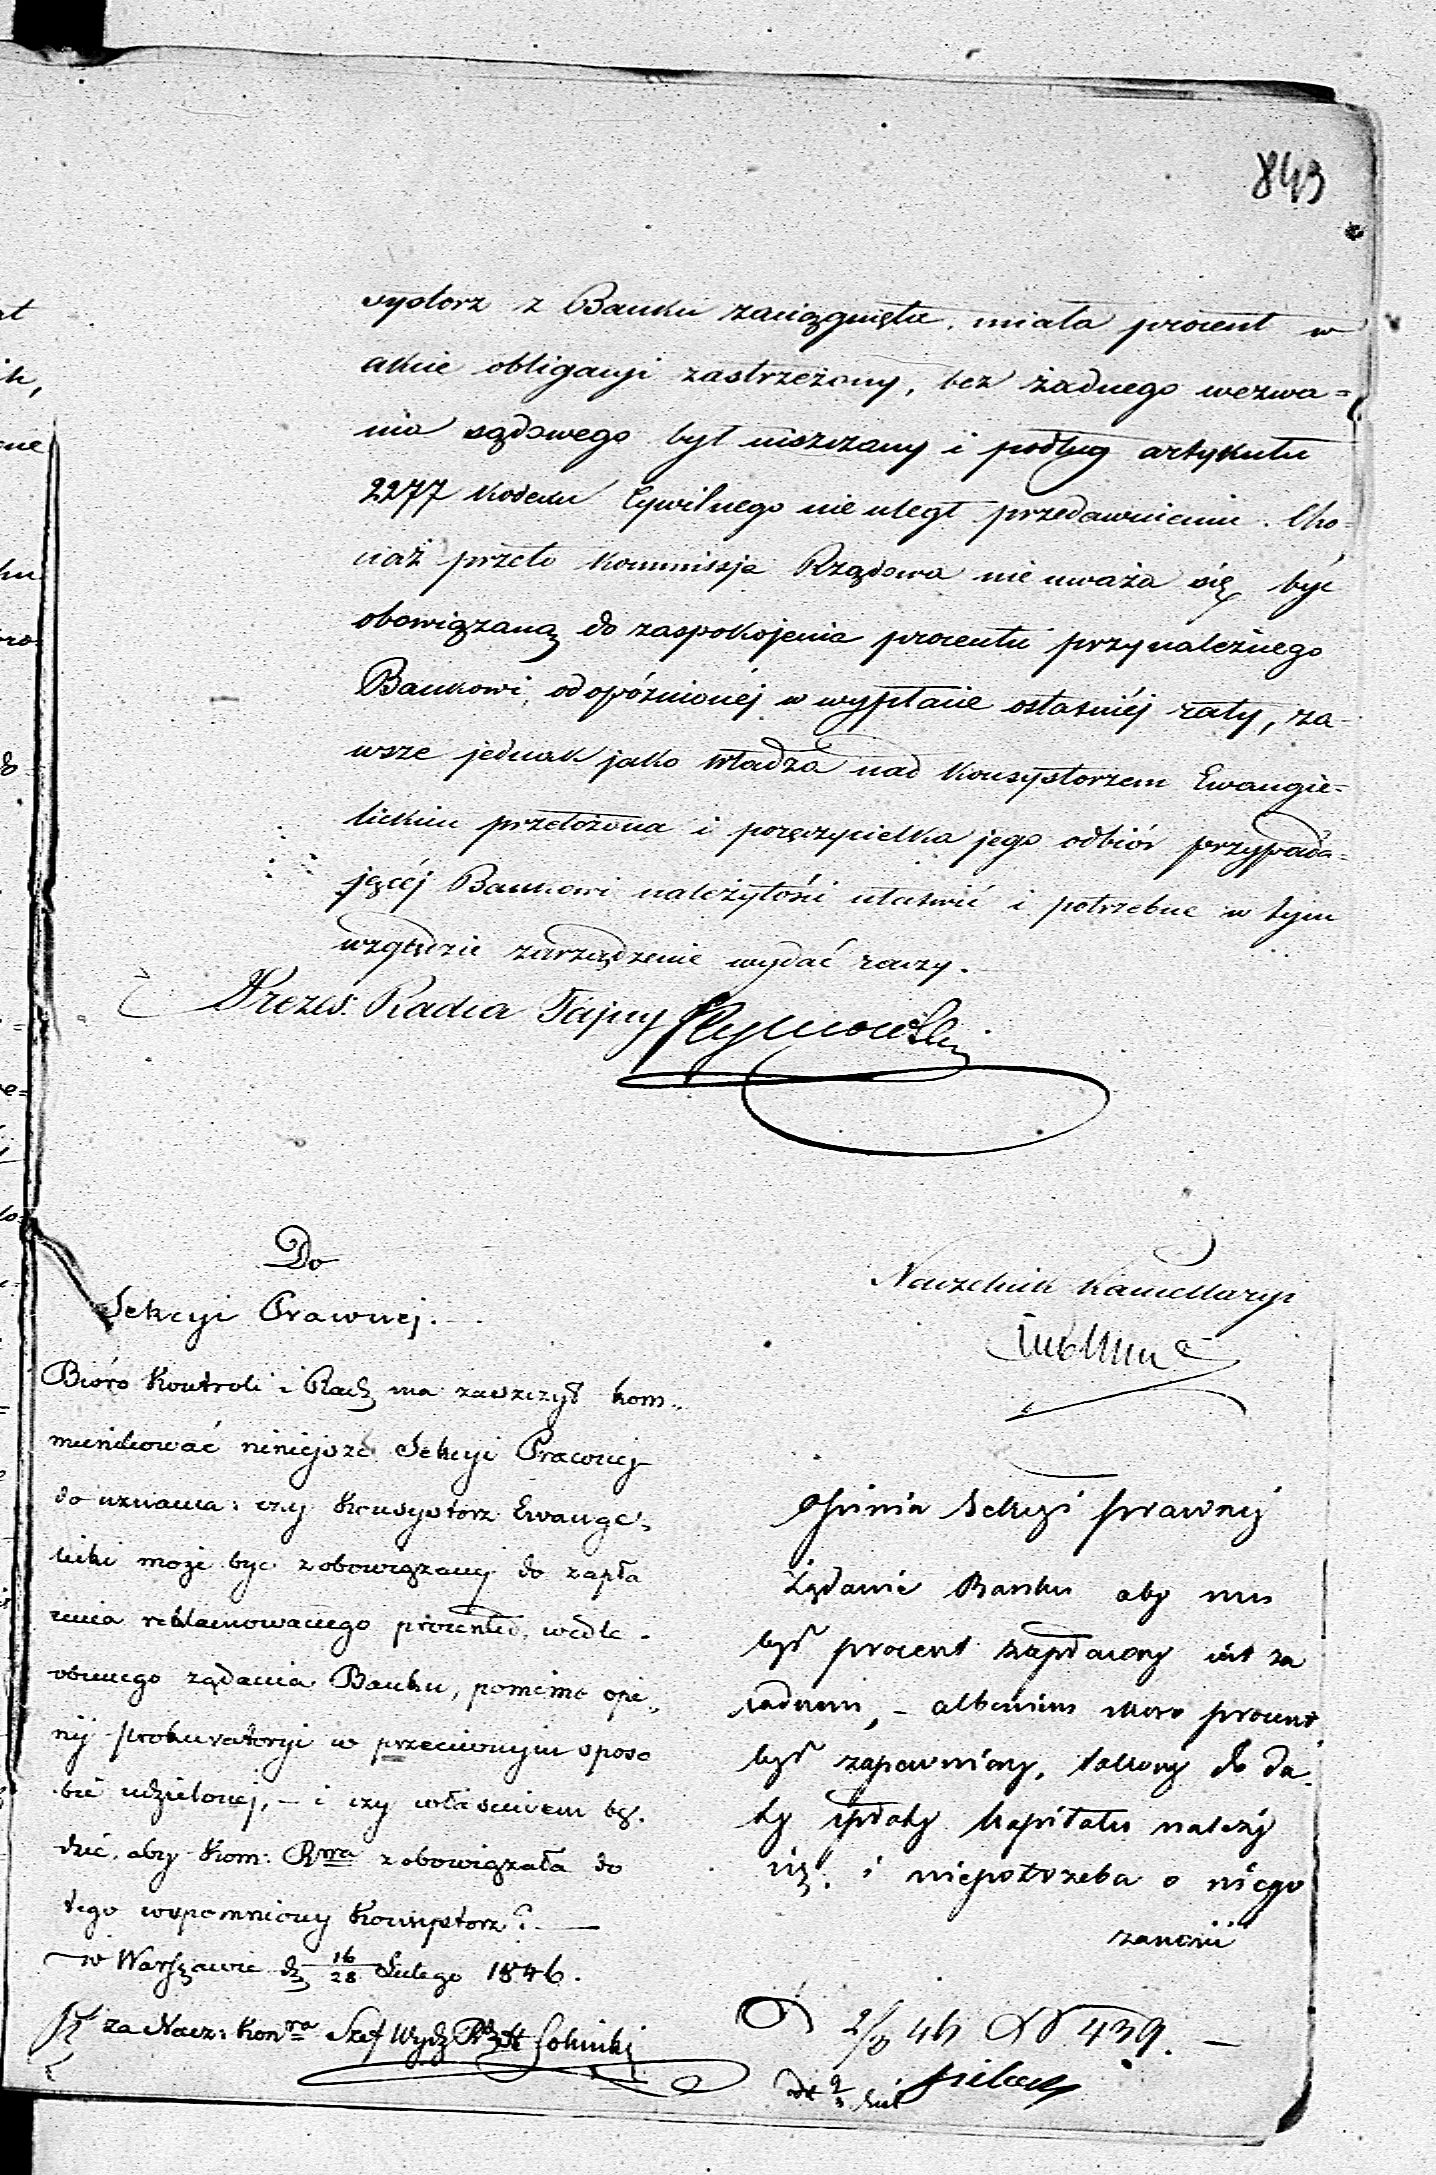 843
systorz z Banku zaciągnięta, miała procent w
akcie obligacyi zastrzeżony, bez żadnego wezwa=
nia sądowego był uiszczany i podług artykułu
2277 Kodexu Cywilnego nie uległ przedawnieniu. Cho=
ciaż przeto Kommissja Rządowa nie uważa się być
obowiązaną do zaspokojenia procentu przynależnego
Bankowi, od opóźnionéj w wypłacie ostatniéj raty, za=
wsze jednak jako władza nad Konsystorzem Ewangie=
lickim przełożona i poręczycielka jego odbiór przypada=
jącéj Bankowi należytości ułatwić i potrzebne w tym
względzie zarządzenie wydać raczy.
Prezes: Radca Tajny Tymowski
Naczelnik Kancellaryi
Do
Sekcyi Prawnej.
Bióro Kontroli i Rach ma zaszczyt kom=
munikować niniejsze Sekcyi Prawnej
do uznania: czy Konsystorz Ewange=
licki może być zobowiązany do zapła
cenia reklamowanego procentu, wedle
obecnego żądania Banku, pomimo opi=
nij prokuratoryi w przeciwnym sposo
bie udzielonej, – i czy właściwem bę=
dzie, aby Kom: Rwa zobowiązała do
tego wspomniony Konsystorz? —
w Warszawie d 16/28 Lutego 1846.
za Nacz: Kon Szef Wydz
Opinia Sekcyi prawnej
Żądanie Banku aby mu
był procent zapłacony jest za
sadnem, – albowiem skoro procent
był zapewniony, takowy do da=
ty spłaty kapitału należy
się. i niepotrzeba o niego
439. —